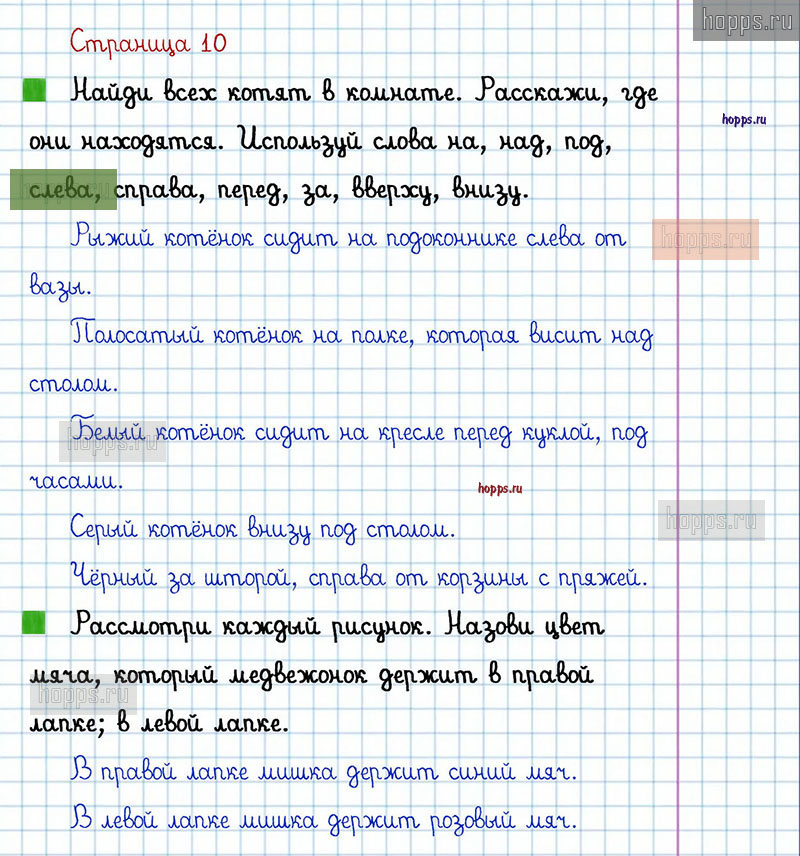 hopps.ru
Страница 10
Найди всех котят в комнате. Расскажи, где
hopps.ru
они находятся. Используй слова на, над, под,
слева, справа, перед, за, вверху, внизу.
Рыжий котёнок сидит на подоконнике слева от
hopps.ru
вазы.
Полосатый котёнок на полке, которая висит над
столом.
Белый котёнок сидит на кресле перед куклой, под
hopps.ru
часами.
hopps.ru
Серый котёнок внизу под столом.
hopps.ru
Чёрный за шторой, справа от корзины с пряжей.
Рассмотри каждый рисунок. Назови цвет
мяча, который медвежонок держит в правой
hopps.ru
лапке; в левой лапке.
В правой лапке мишка держит синий мяч.
В левой лапке мишка держит розовый мяч.